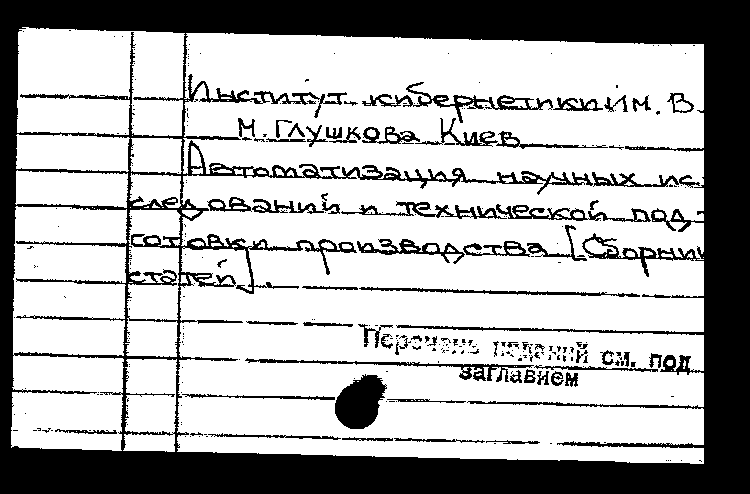 Институт кибернетики им. В.
М. Глушкова Киев
Автоматизация научных ис-
следований и технической под-
готовки производства [Сборник
статей].
Перечень изданий см. под
заглавием